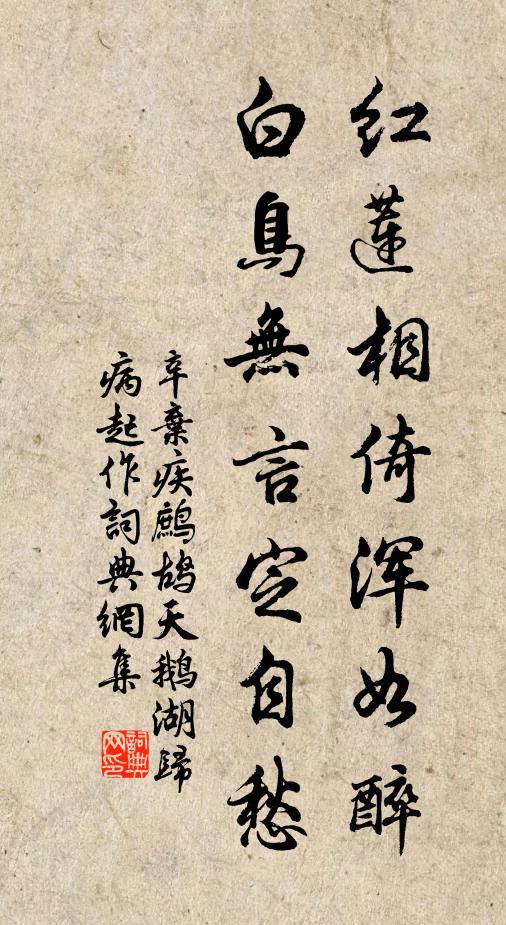 紅蓮相倚渾如醉
白鳥無言定自愁
辛棄疾鷓鴣天鵝湖歸
病起作詞典網集
詞典
网印